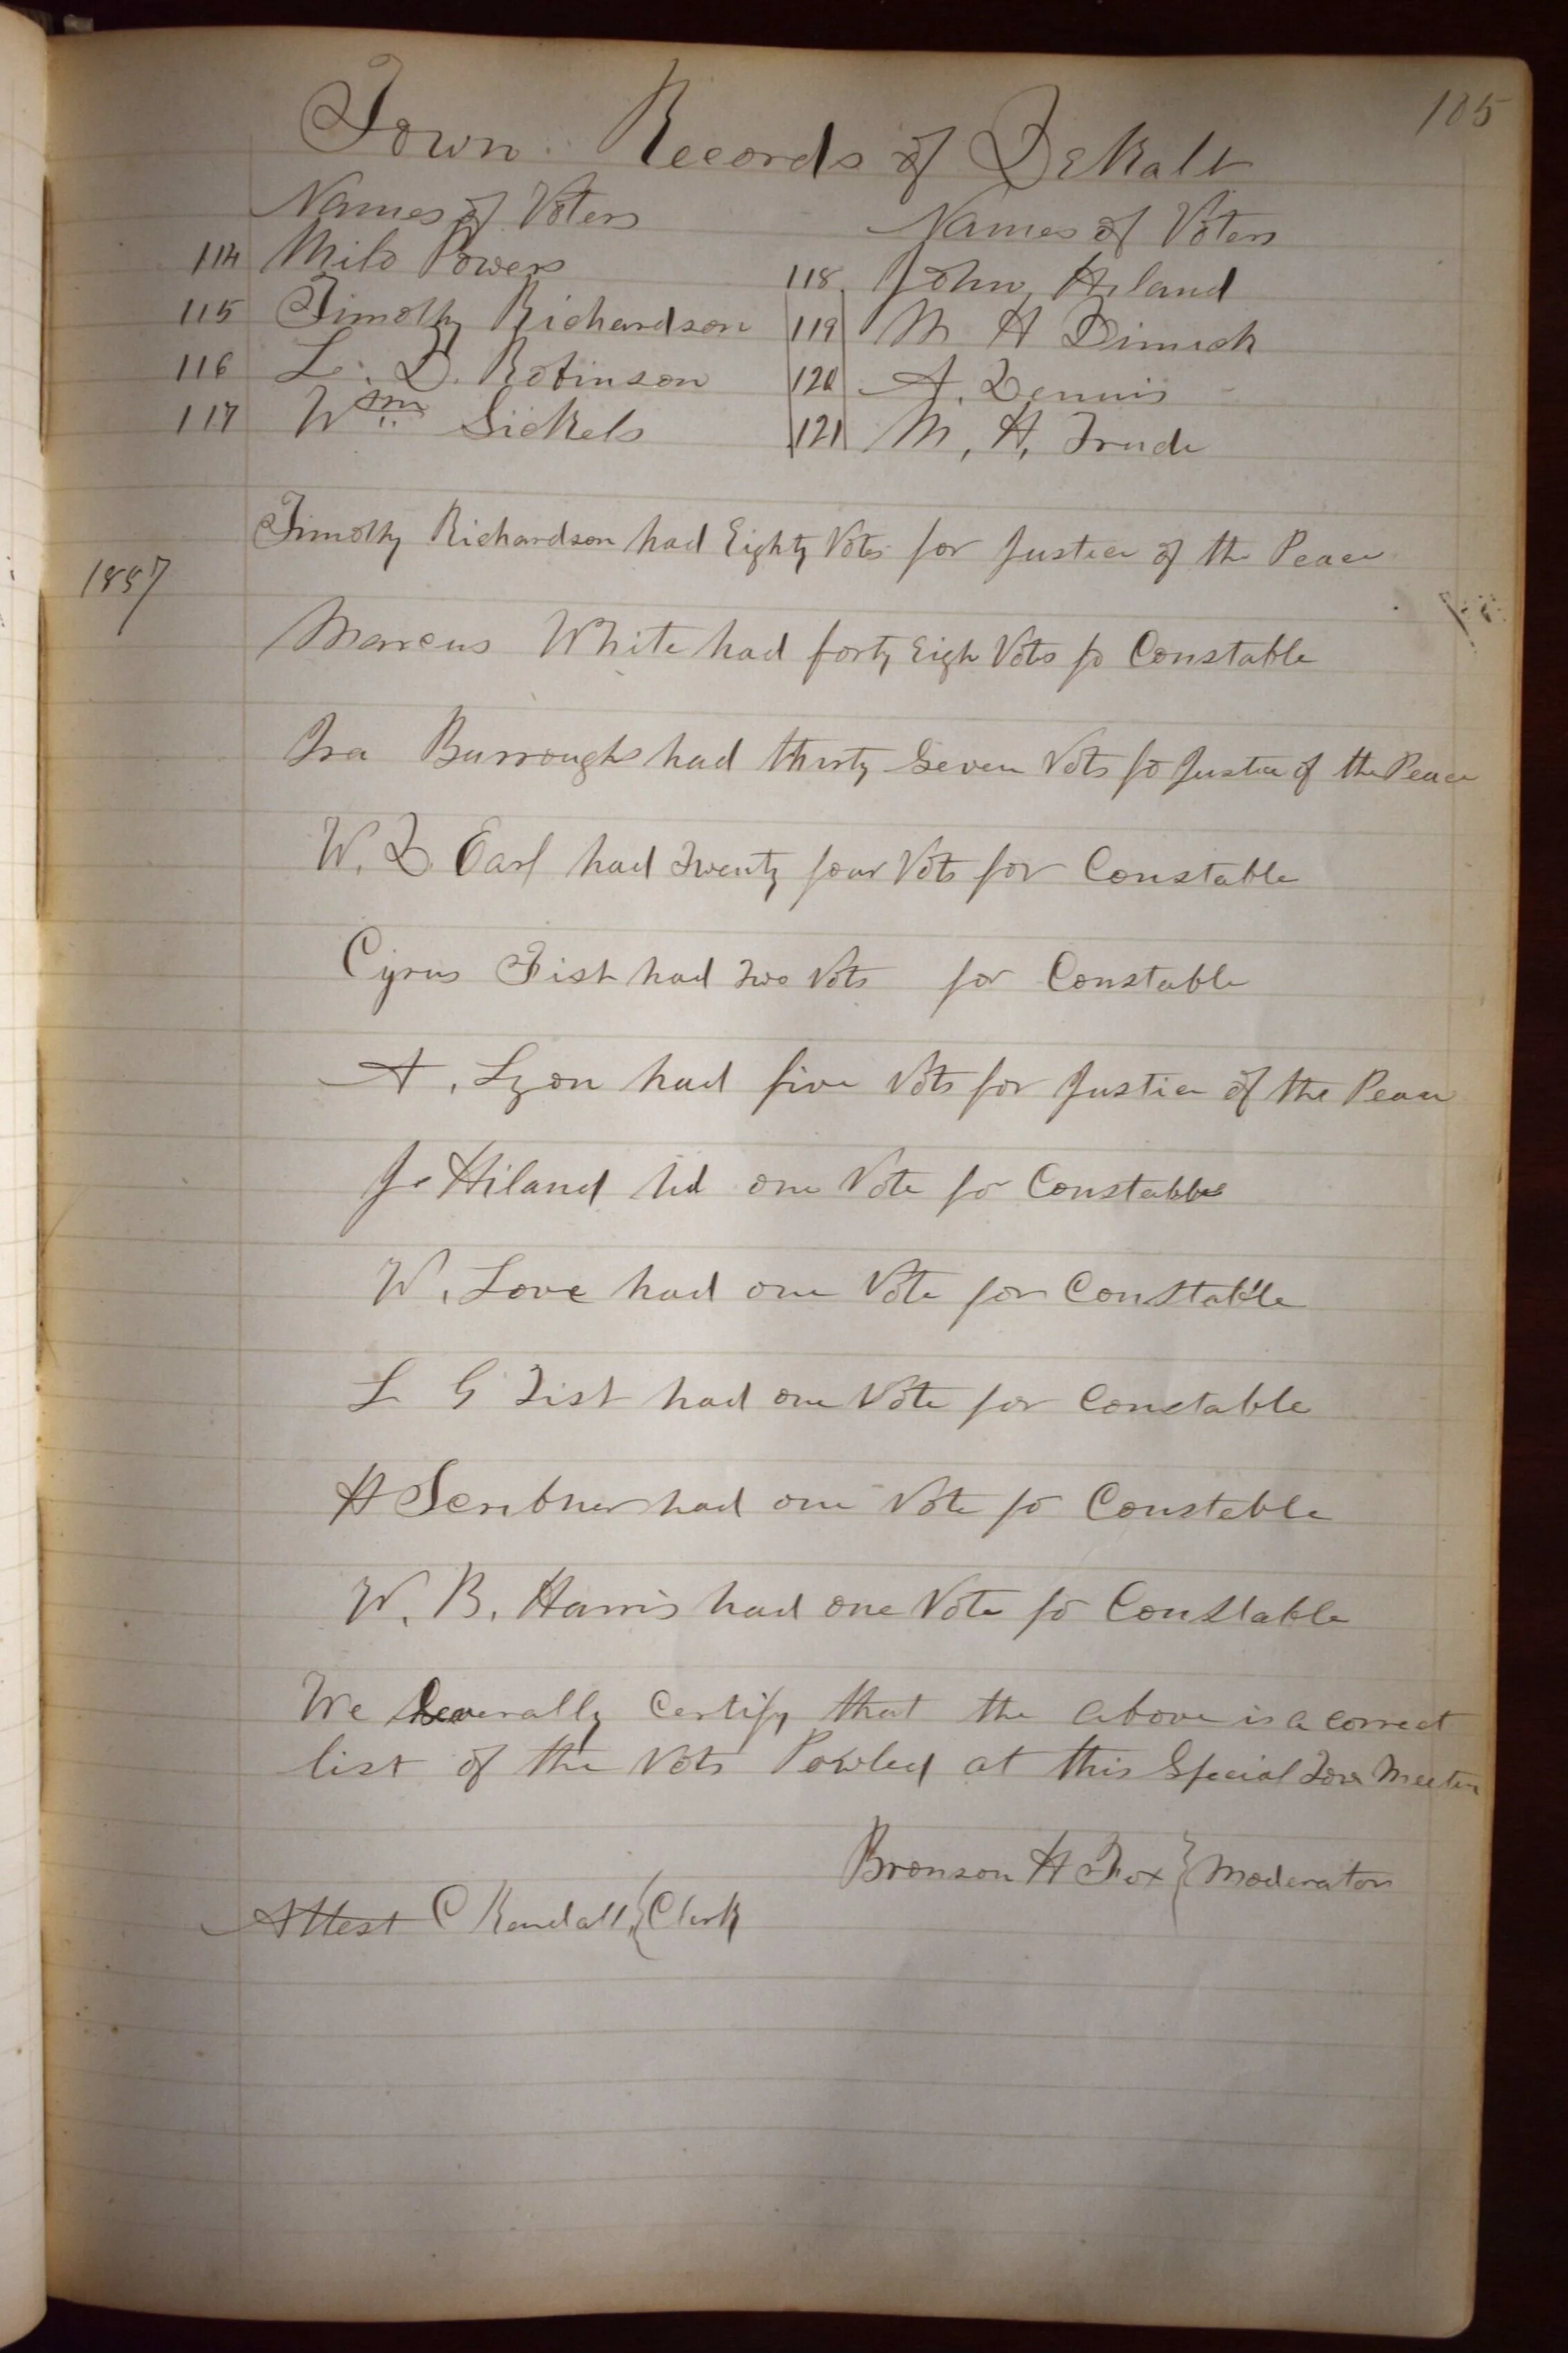 105
Town Records of DeKalb
Names of Voters Names of Voters
114 Milo Powers 118 John Hiland
115 Timothy Richardson 119 M H Dimick
116 L. D. Robinson 120 A. Dennis
117 Wm Sickels 121 M, H, Trude
Timothy Richardson had Eighty Votes for Justice of the Peace
1857
Marcus White had forty Eigh Vots fo Constable
Ira Burroughs had thirty Seven Vots fo Justice of the Peace
W. D. Earl had Twenty four Vots for Constable
Cyrus Fisk had Two Vots for Constable
A. Lyon had five Vots for Justice of the Peace
J. Hiland hd one Vote fo Constable
W. Love had one Vote for Constable
L G Fisk had one Vote for Constable
H Scribner had one Vote fo Constable
W. B. Harris had one Vote fo Constable
We Severally Certify that the above is a correct
list of the Vots Powled at this Special Town Meeten
Bronson H Fox } Moderator
Attest C Kendall { Clerk